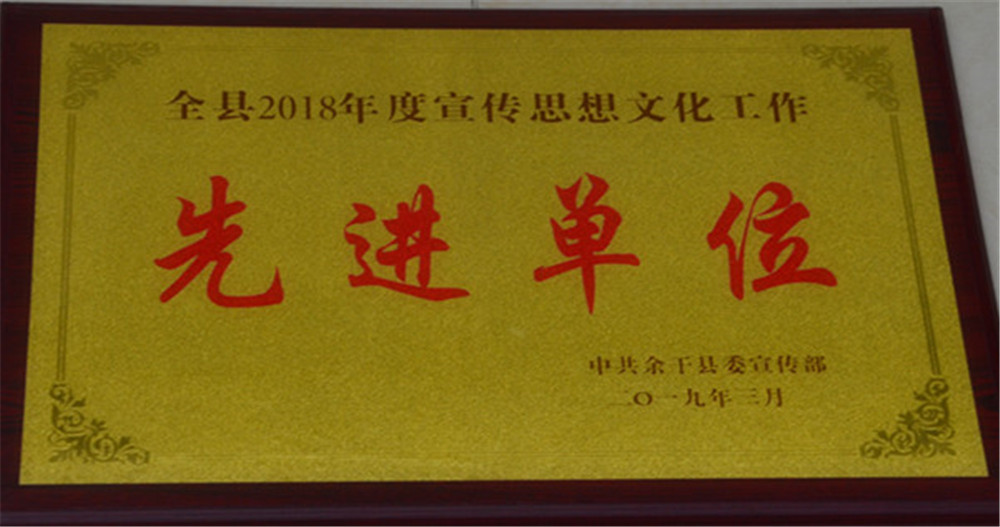 全县2018年度宣传思想文化工作
先进单位
中共余干县委宣传部
二〇一九年三月